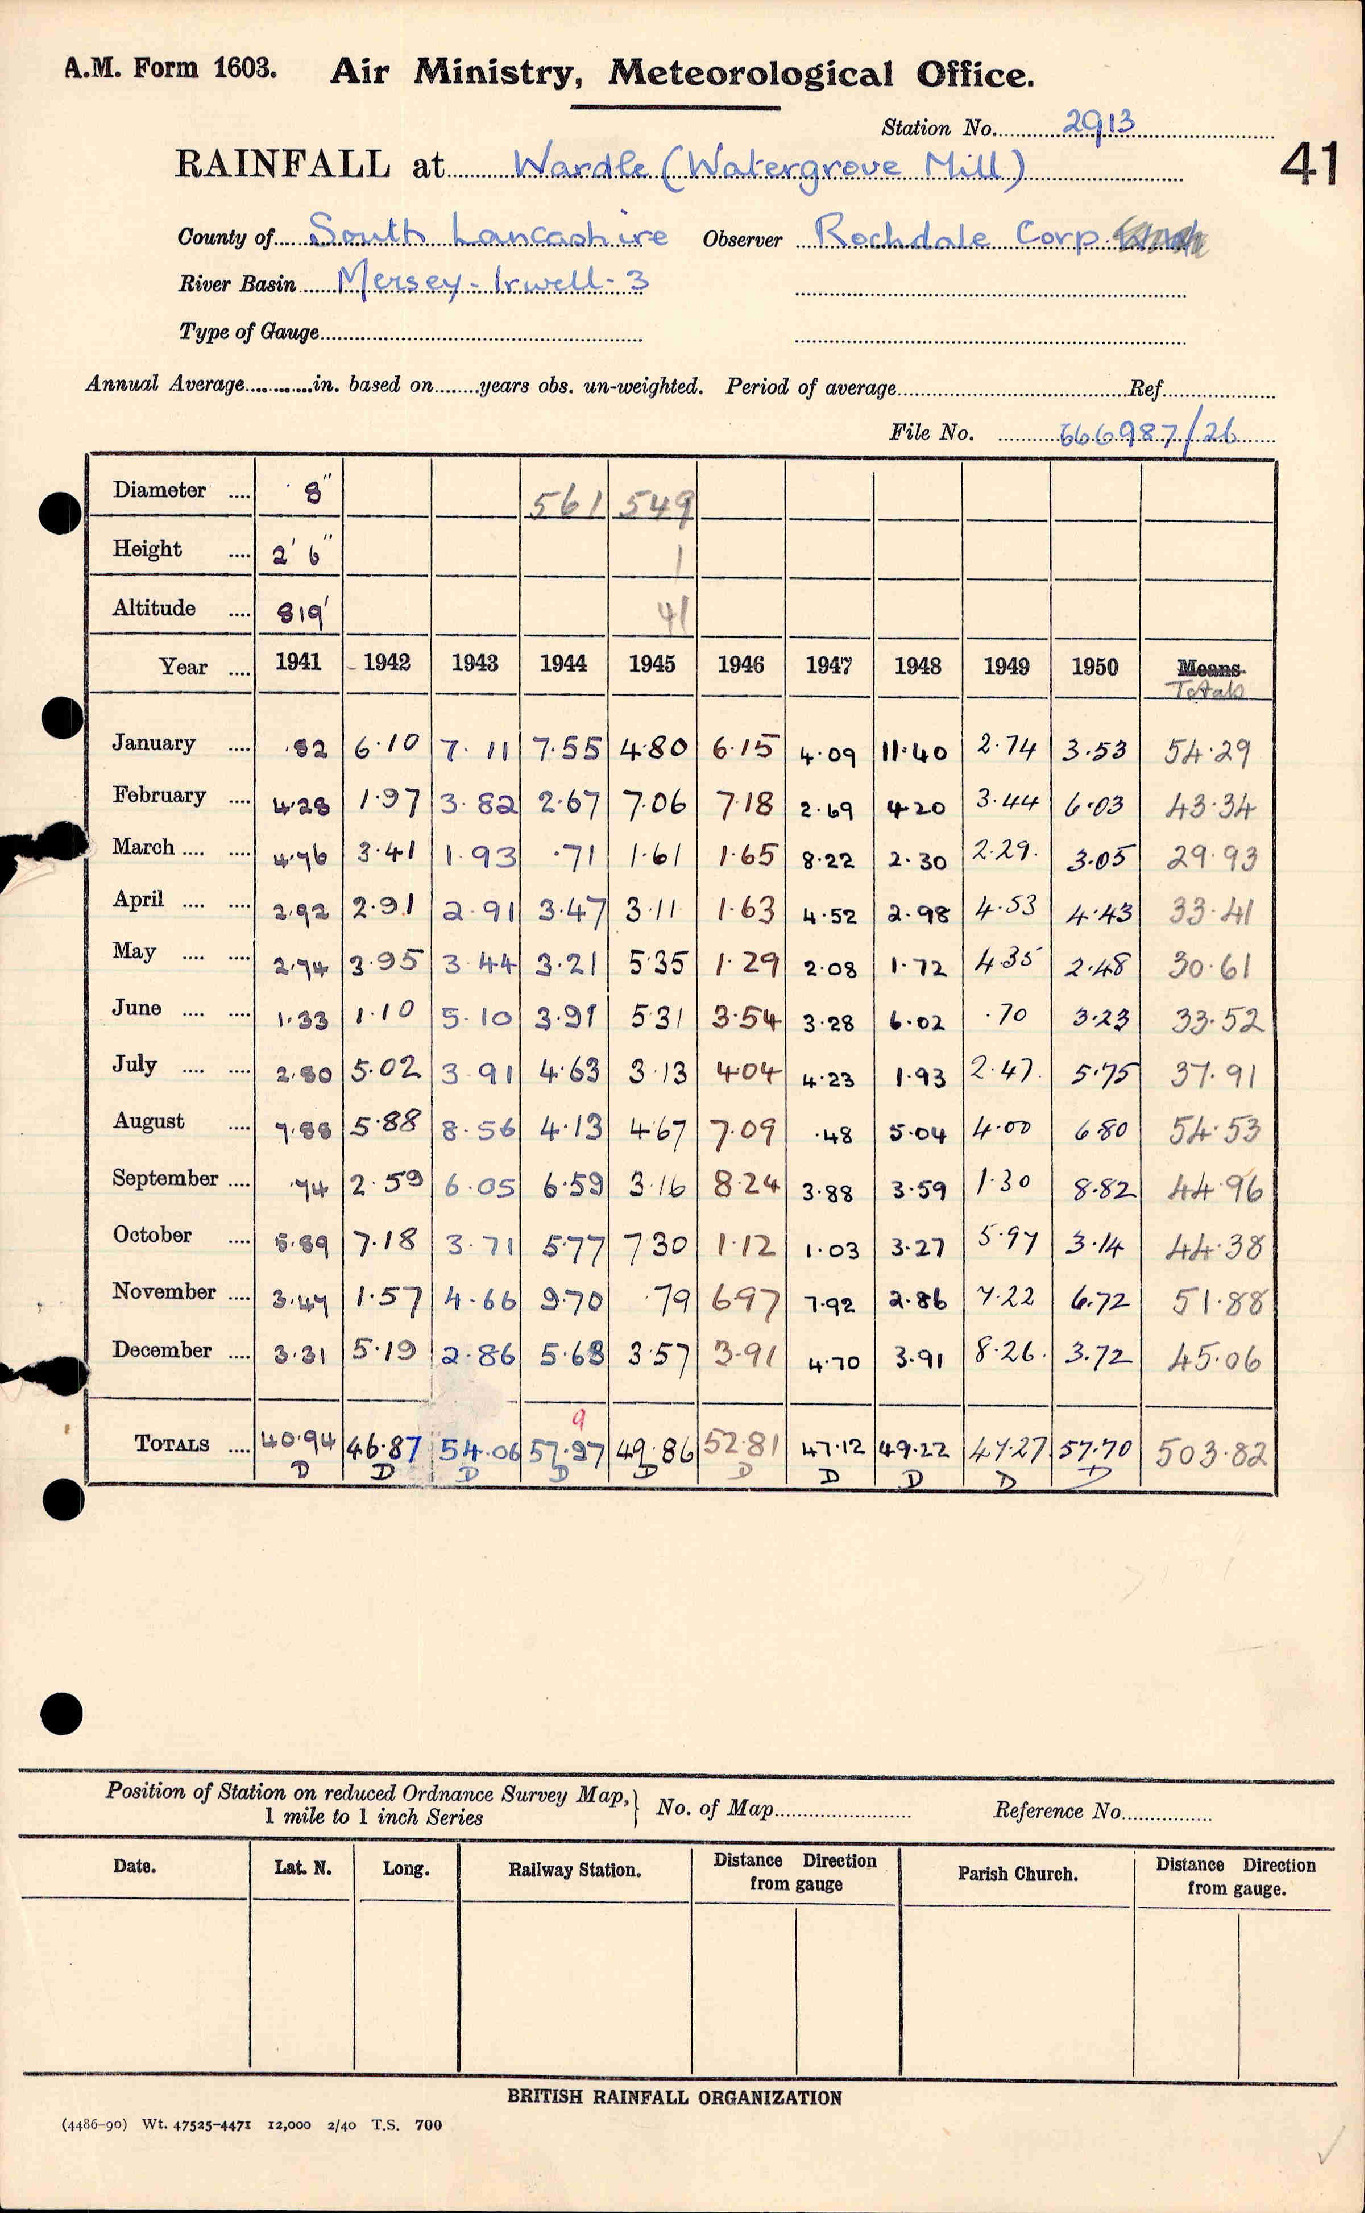 A.M. Form 1603. Air Ministry, Meteorological Office.
Station No. 2913
RAINFALL at Wardle (Watergrove Mill) 41
County of South Lancashire Observer Rochdale Corp
River Basin Mersey-Irwell-3
Type of Gauge
Annual Average in. based on years obs. un-weighted. Period of average Ref
File No. 666987/26
Diameter 8" 561 549
Height 2' 6" 1
Altitude 819' 41
Year 1941 1942 1943 1944 1945 1946 1947 1948 1949 1950 Means
Totals
January .82 6.10 7.11 7.55 4.80 6.15 4.09 11.40 2.74 3.53 54.29
February 4.28 1.97 3.82 2.67 7.06 7.18 2.69 4.20 3.44 6.03 43.34
March 4.76 3.41 1.93 .71 1.61 1.65 8.22 2.30 2.29 3.05 29.93
April 2.92 2.91 2.91 3.47 3.11 1.63 4.52 2.98 4.53 4.43 33.41
May 2.74 3.95 3.44 3.21 5.35 1.29 2.08 1.72 4.35 2.48 30.61
June 1.33 1.10 5.10 3.91 5.31 3.54 3.28 6.02 .70 3.23 33.52
July 2.80 5.02 3.91 4.63 3.13 4.04 4.23 1.93 2.47 5.75 37.91
August 7.88 5.88 8.56 4.13 4.67 7.09 .48 5.04 4.00 6.80 54.53
September .74 2.59 6.05 6.59 3.16 8.24 3.88 3.59 1.30 8.82 44.96
October 5.89 7.18 3.71 5.77 7.30 1.12 1.03 3.27 5.97 3.14 44.38
November 3.47 1.57 4.66 9.70 .79 6.97 7.92 2.86 7.22 6.72 51.88
December 3.31 5.19 2.86 5.63 3.57 3.91 4.70 3.91 8.26 3.72 45.06
9
TOTALS 40.94 46.87 54.06 57.97 49.86 52.81 47.12 49.22 47.27 57.70 503.82
D D D D D D D D D D
Position of Station on reduced Ordnance Survey Map, No. of Map Reference No.
1 mile to 1 inch Series
Date. Lat. N. Long. Railway Station. Distance Direction from gauge Parish Church. Distance Direction from gauge.
BRITISH RAINFALL ORGANIZATION
(4486-90) Wt. 47525-4471 12,000 2/40 T.S. 700